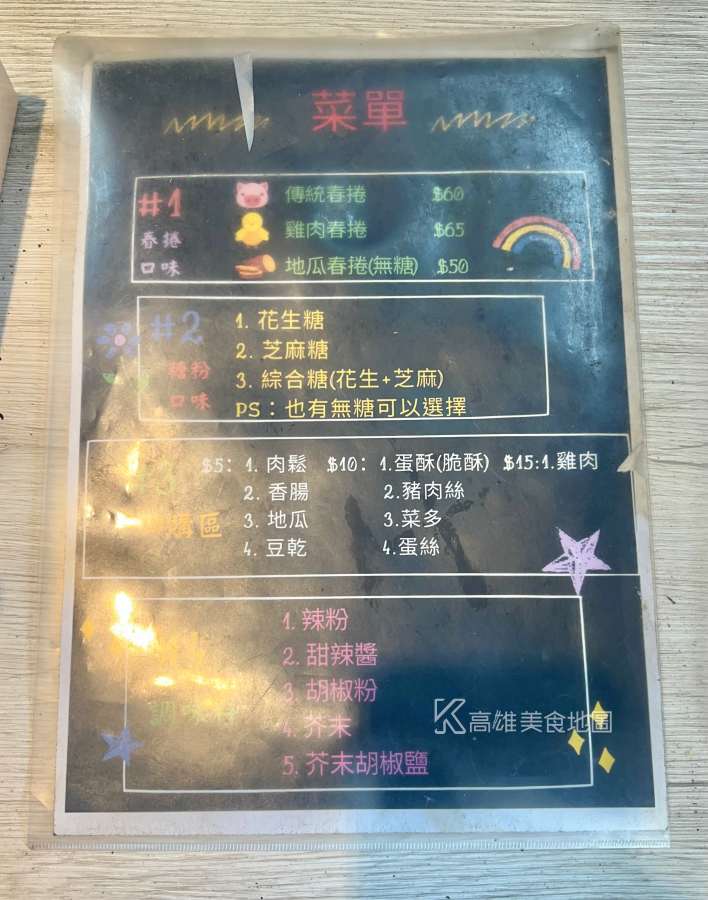 菜單
#1
春捲
口味
傳統春捲 $60
雞肉春捲 $65
地瓜春捲(無糖) $50
#2
糖粉
口味
1. 花生糖
2. 芝麻糖
3. 綜合糖(花生+芝麻)
PS：也有無糖可以選擇
$5: 1. 肉鬆 $10: 1.蛋酥(脆酥) $15:1.雞肉
2. 香腸 2.豬肉絲
3. 地瓜 3.菜多
4. 豆乾 4.蛋絲
區
1. 辣粉
2. 甜辣醬
3. 胡椒粉
4. 芥末
5. 芥末胡椒鹽
高雄美食地圖